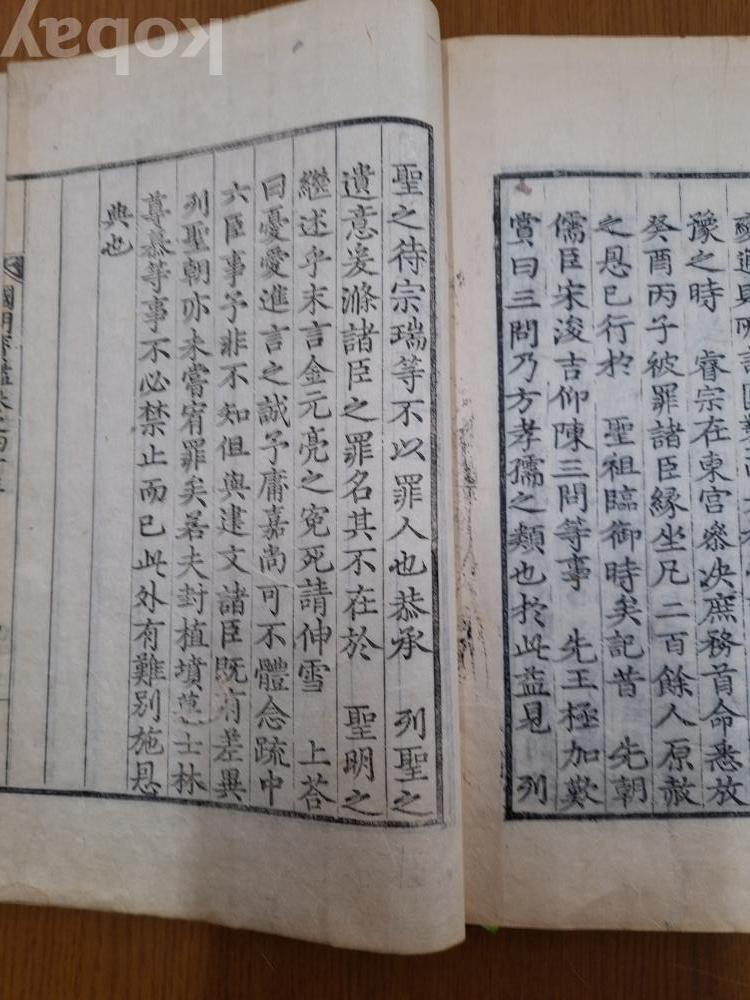 豫之時 睿宗在東宮叅决庶務首命悉放
癸酉丙子被罪諸臣緣坐凡二百餘人原赦
之恩已行於 聖祖臨御時矣記昔 先朝
儒臣宋浚吉仰陳三問等事 先王極加歎
賞曰三問乃方孝孺之類也於此益見 列
聖之待宗瑞等不以罪人也恭承 列聖之
遺意爰滌諸臣之罪名其不在於 聖明之
繼述乎末言金元亮之寃死請伸雪 上答
曰憂愛進言之誠予庸嘉尚可不體念疏中
六臣事予非不知但與建文諸臣旣有差異
列聖朝亦未嘗宥罪矣若夫封植墳墓士林
尊慕等事不必禁止而已此外有難別施恩
典也
國朝寶鑑卷之四十
kobay